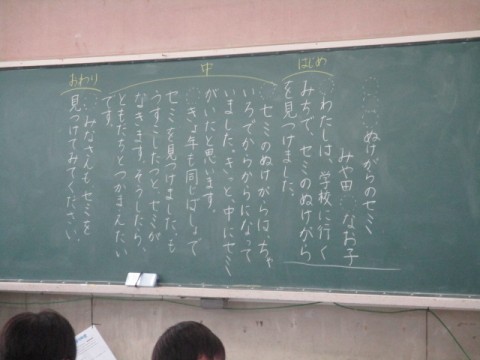 ぬけがらのセミ
みや田 なお子
はじめ
わたしは、学校に行く
みちで、セミのぬけがら
を見つけました。
中
セミのぬけがらは、ちゃ
いろでからからになって
いました。きっと、中にセミ
がいたと思います。
きょ年も同じばしょで
セミを見つけました。も
うすこしたつと、セミが
なきます。そうしたら、
ともだちとつかまえたい
です。
おわり
みなさんも、セミを
見つけてみてください。